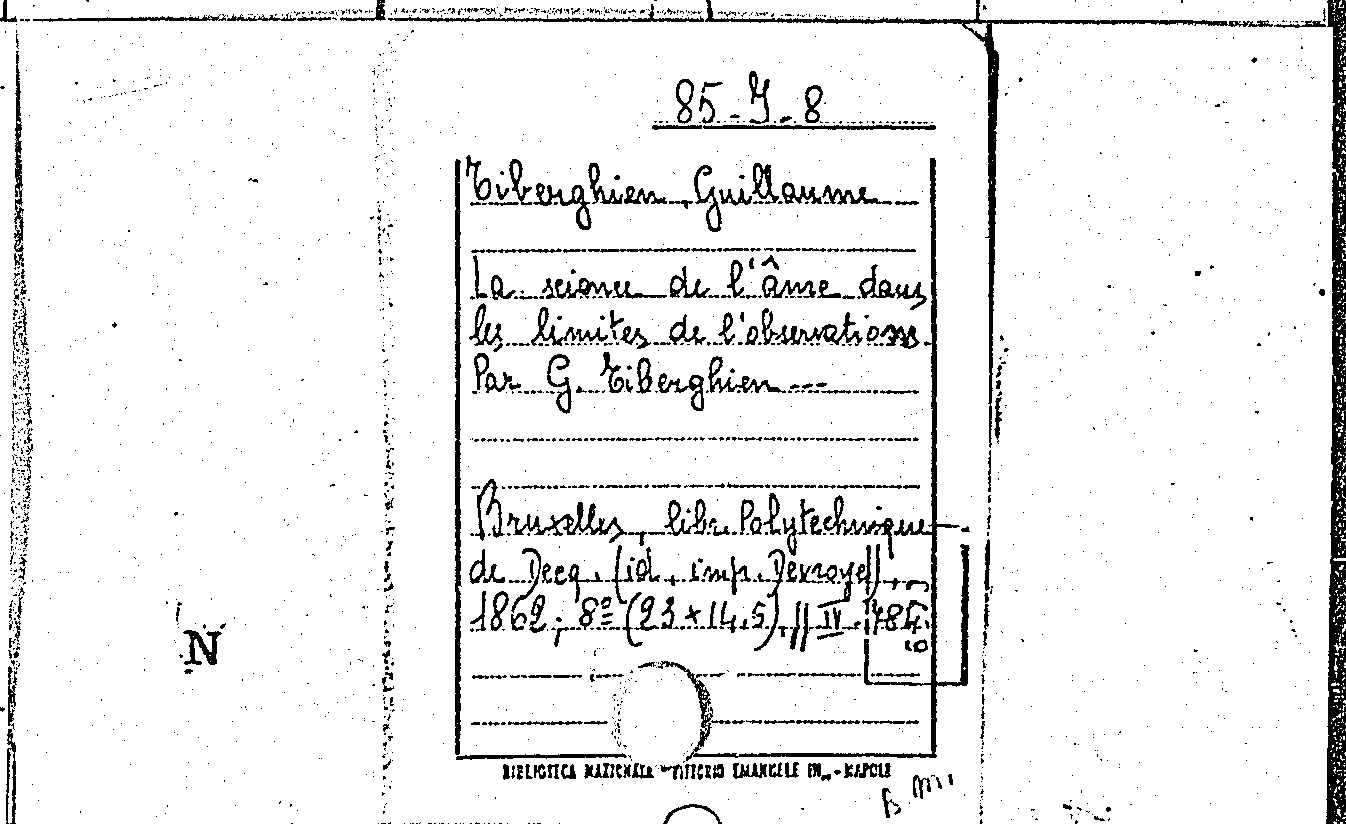 85-J-8
Tiberghien, Guillaume
La science de l'âme dans
les limites de l'observations.
Par G. Tiberghien ---
Bruxelles, libr. Polytechnique
de Decq. (id., imp. Devroye),
1862; 8º (23 x 14,5). // IV.
N
BIBLIOTECA NAZIONALE VITTORIO EMANUELE III - NAPOLI